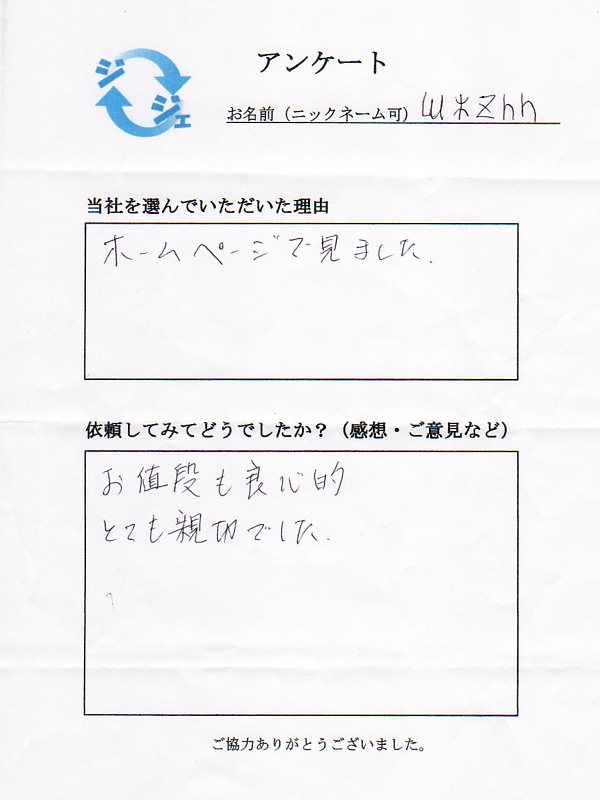 アンケート
ジ
ジェ
お名前（ニックネーム可）
当社を選んでいただいた理由
ホームページで見ました.
依頼してみてどうでしたか？（感想・ご意見など）
お値段も良心的
とても親切でした.
ご協力ありがとうございました。